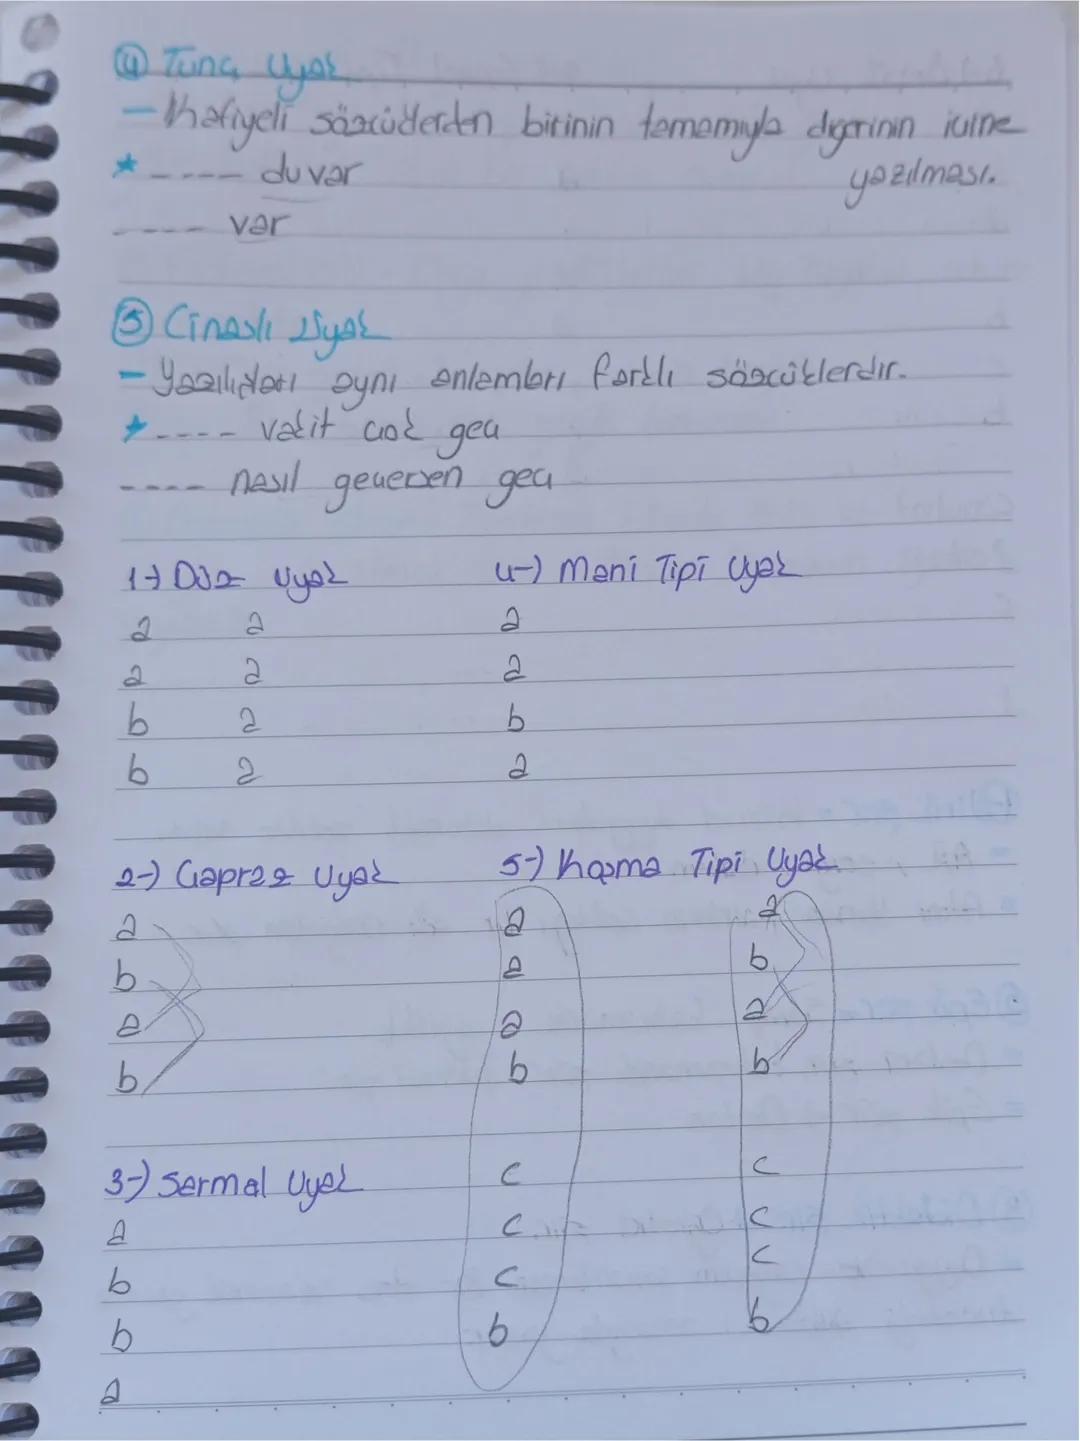 ④ Tunç Uyak
- Kafiyeli sözcüklerden birinin tamamıyla diğerinin içine
yazılması.
* ---- duvar
---- var
⑤ Cinaslı Uyak
- Yazılışları aynı anlamları farklı sözcüklerdir.
* ---- vakit çok geç
---- nasıl geçersen geç
1-) Düz Uyak
a a
a a
b a
b a
4-) Mani Tipi Uyak
a
a
b
a
2-) Çapraz Uyak
a
b
a
b
5-) Koşma Tipi Uyak
a a
a b
a a
b b
c c
c c
c c
b b
3-) Sarmal Uyak
a
b
b
a